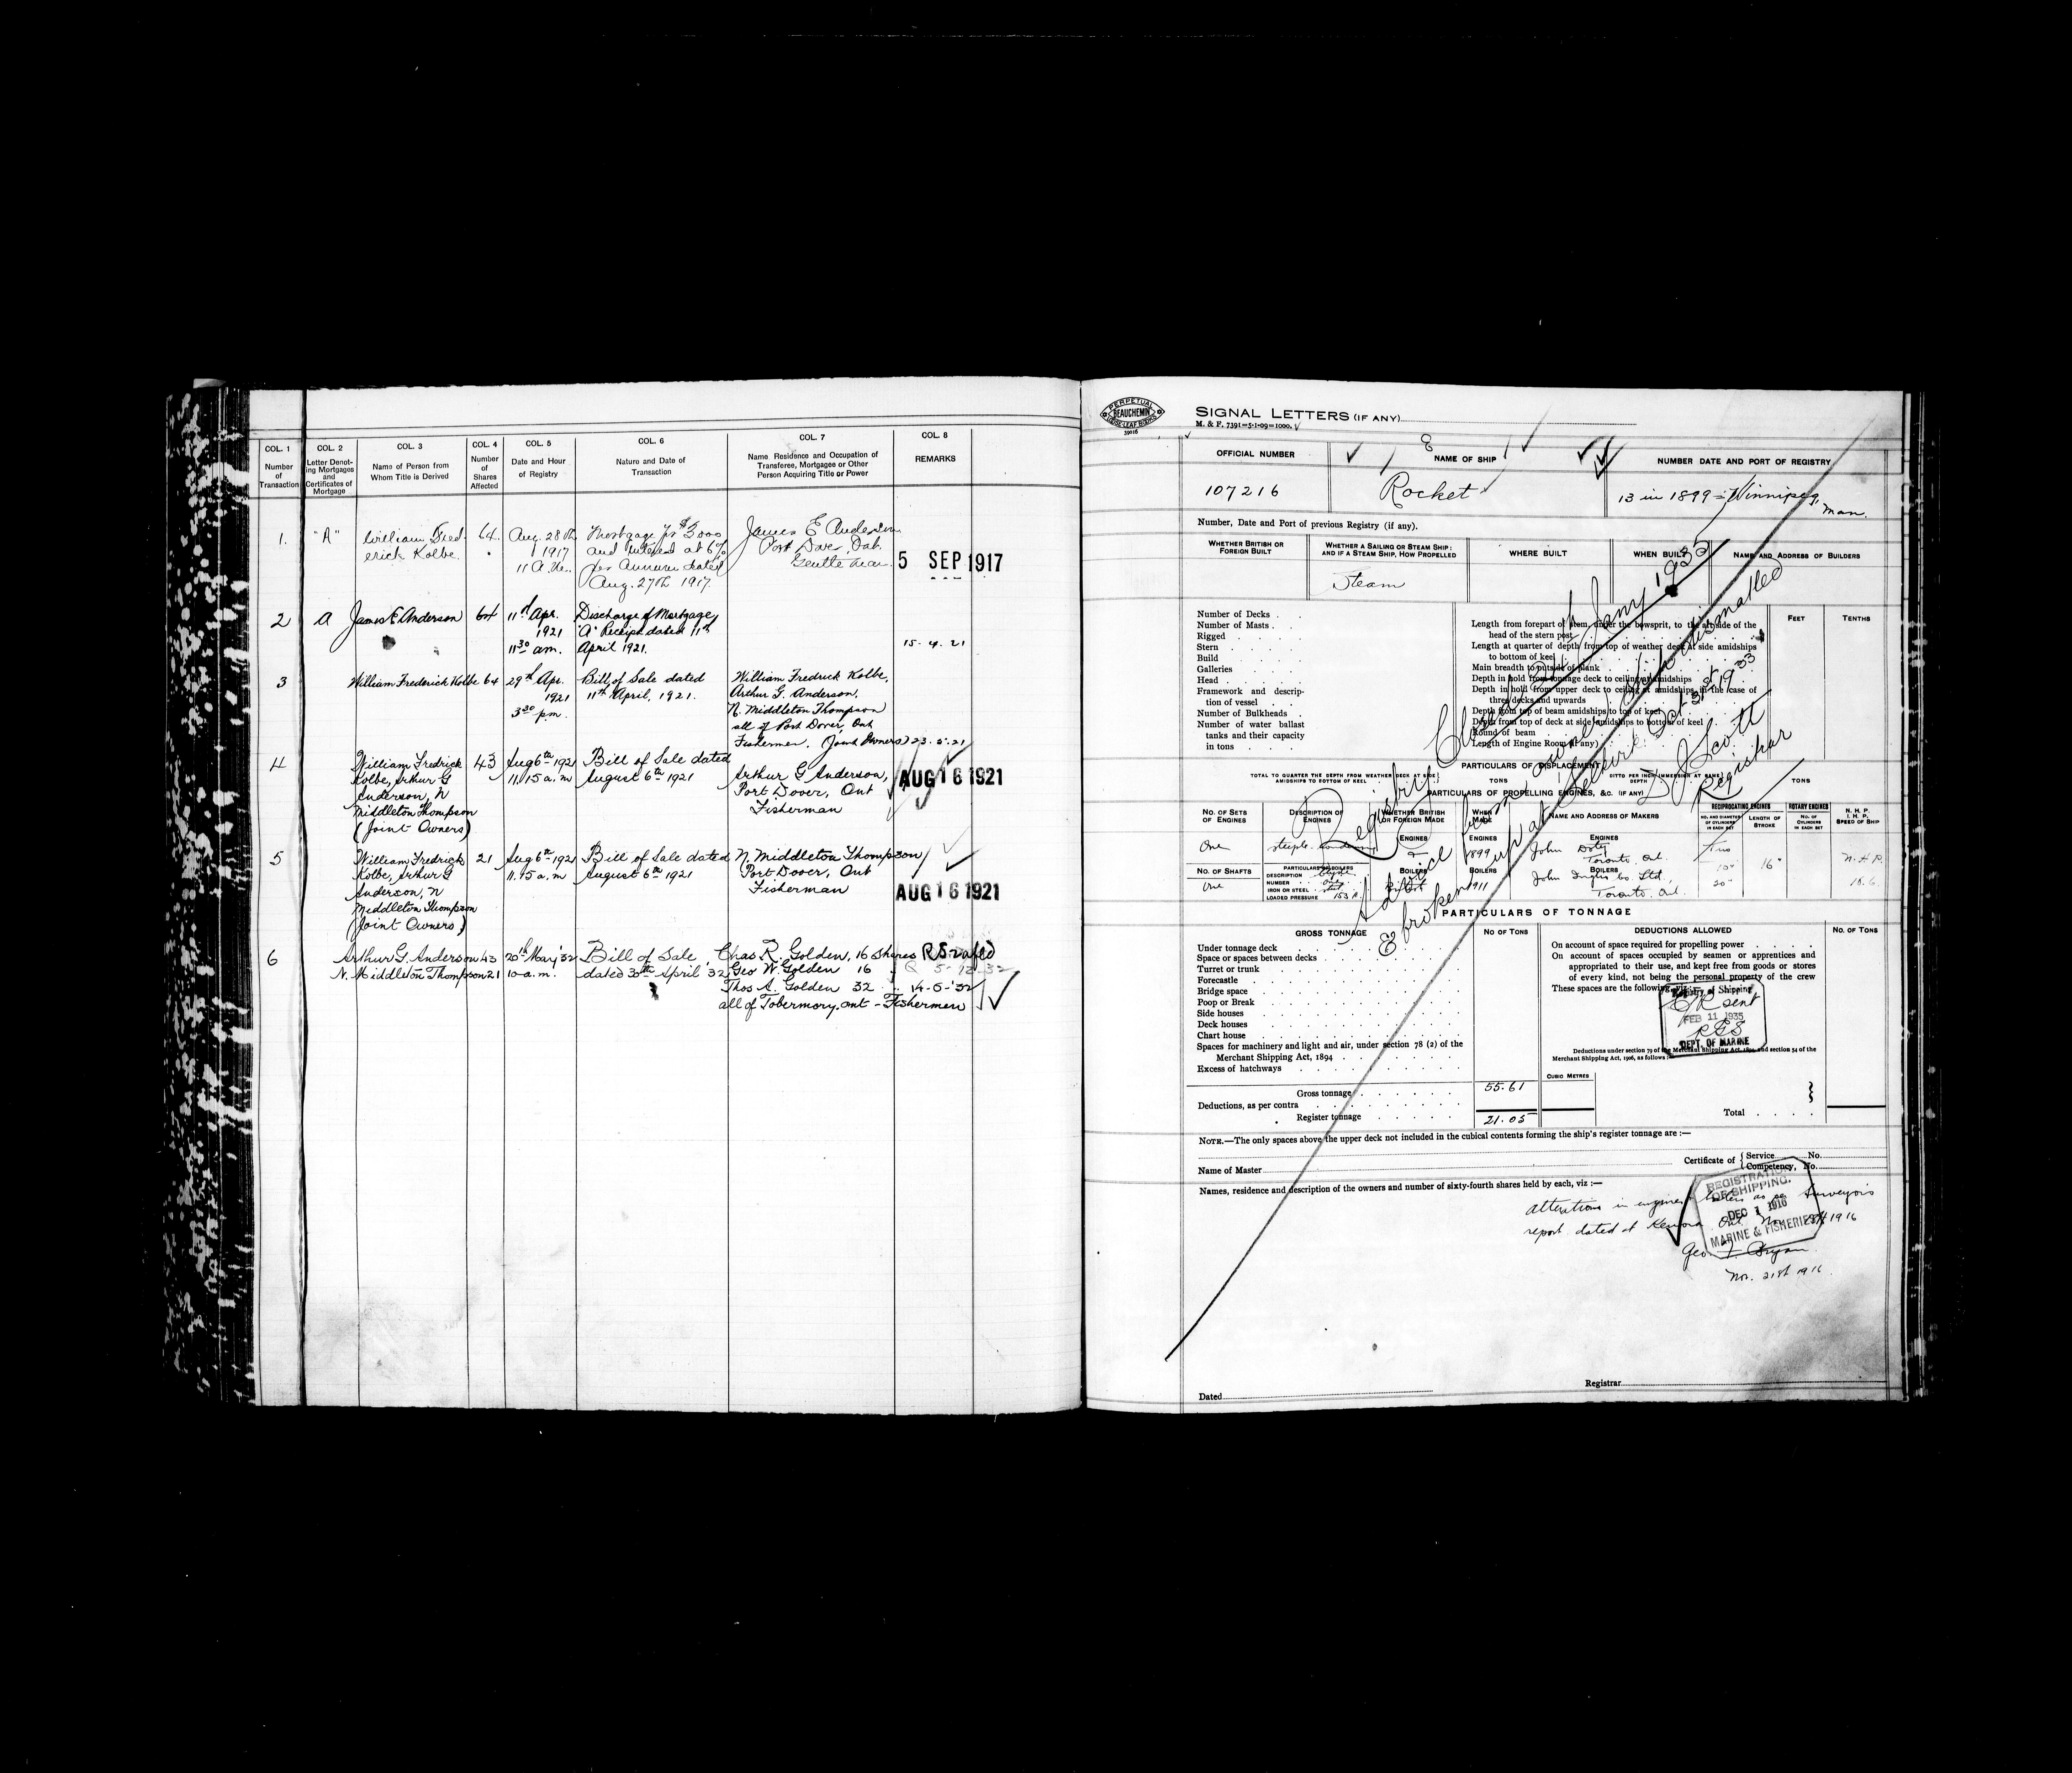 COL. 1 COL. 2 COL. 3 COL. 4 COL. 5 COL. 6 COL. 7 COL. 8
Number of Transaction
Letter Denoting Mortgage and Certificates of Mortgage
Name of Person from Whom Title is Derived
Number of Shares Affected
Date and Hour of Registry
Nature and Date of Transaction
Name Residence and Occupation of Transferee, Mortgagee or Other Person Acquiring Title or Power
REMARKS
1. "A" William Fred- 64. Aug. 28th Mortgage for $3000 James E Anderson
erick Kolbe. 1917 and interest at 6% Port Dover, Ont.
11 A.M. per annum dated Gentleman 5 SEP 1917
Aug. 27th 1917.
2 A James E Anderson 64 11th Apr. Discharge of Mortgage
1921 "A" Receipt dated 11th
11 30 am. April 1921. 15. 4. 21
3 William Frederick Kolbe 64 29th Apr. Bill of Sale dated William Fredrick Kolbe,
1921 11th April, 1921. Arthur G. Anderson,
3 30 pm. N. Middleton Thompson
all of Port Dover, Ont
Fishermen. (Joint Owners) 23. 5. 21
4 William Fredrick 43 Aug 6th 1921 Bill of Sale dated
Kolbe, Arthur G 11.15 a.m August 6th 1921 Arthur G Anderson, AUG 16 1921
Anderson, N Port Dover, Ont
Middleton Thompson Fisherman
(Joint Owners)
5 William Fredrick 21 Aug 6th 1921 Bill of Sale dated N. Middleton Thompson
Kolbe, Arthur G 11.15 a.m August 6th 1921 Port Dover, Ont
Anderson, N Fisherman AUG 16 1921
Middleton Thompson
(Joint Owners)
6 Arthur G. Anderson 43 20th May '32 Bill of Sale, Chas R. Golden, 16 Shares
N. Middleton Thompson 21 10 a.m. dated 30th April 32 Geo W. Golden 16 "
Thos A. Golden 32 "
all of Tobermory. Ont - Fishermen
PERPETUAL
BEAUCHEMIN
LOOSE LEAF BINDERS
39016
SIGNAL LETTERS (IF ANY)
M. & F. 7391=5-1-09=1000.
OFFICIAL NUMBER NAME OF SHIP NUMBER DATE AND PORT OF REGISTRY
107216 Rocket 13 in 1899 = Winnipeg,
Man.
Number, Date and Port of previous Registry (if any).
WHETHER BRITISH OR FOREIGN BUILT
WHETHER A SAILING OR STEAM SHIP: AND IF A STEAM SHIP, HOW PROPELLED
WHERE BUILT
WHEN BUILT
NAME AND ADDRESS OF BUILDERS
Steam
Number of Decks
Number of Masts
Rigged
Stern
Build
Galleries
Head
Framework and description of vessel
Number of Bulkheads
Number of water ballast
tanks and their capacity
in tons
Length from forepart of stem, under the bowsprit, to the aft side of the
head of the stern post
Length at quarter of depth from top of weather deck at side amidships
to bottom of keel
Main breadth to outside of plank
Depth in hold from tonnage deck to ceiling at amidships
Depth in hold from upper deck to ceiling at amidships, in the case of
three decks and upwards
Depth from top of beam amidships to top of keel
Depth from top of deck at side amidships to bottom of keel
Round of beam
Length of Engine Room (if any)
FEET TENTHS
Registry Closed Jany 1935
Advice from owner, Ship dismantled
& broken up at Selkirk Oct 31st 1933
D. J. Scott
Registrar
PARTICULARS OF DISPLACEMENT
TOTAL TO QUARTER THE DEPTH FROM WEATHER DECK AT SIDE AMIDSHIPS TO BOTTOM OF KEEL
TONS
DITTO PER INCH IMMERSION AT SAME DEPTH
TONS
PARTICULARS OF PROPELLING ENGINES, &C. (IF ANY)
NO. OF SETS OF ENGINES
DESCRIPTION OF ENGINES
WHETHER BRITISH OR FOREIGN MADE
WHEN MADE
NAME AND ADDRESS OF MAKERS
RECIPROCATING ENGINES
NO. AND DIAMETER OF CYLINDERS IN EACH SET
LENGTH OF STROKE
ROTARY ENGINES
NO. OF CYLINDERS IN EACH SET
N. H. P.
I. H. P.
SPEED OF SHIP
ENGINES ENGINES ENGINES
One 1899 John Doty Two
Toronto, Ont. 16" N.H.P.
NO. OF SHAFTS
PARTICULARS OF BOILERS
DESCRIPTION
NUMBER
IRON OR STEEL
LOADED PRESSURE
BOILERS BOILERS BOILERS
One 1911 John Inglis Co. Ltd., 20"
Toronto, Ont.
PARTICULARS OF TONNAGE
GROSS TONNAGE NO OF TONS DEDUCTIONS ALLOWED NO. OF TONS
Under tonnage deck
Space or spaces between decks
Turret or trunk
Forecastle
Bridge space
Poop or Break
Side houses
Deck houses
Chart house
Spaces for machinery and light and air, under section 78 (2) of the
Merchant Shipping Act, 1894
Excess of hatchways
On account of space required for propelling power
On account of spaces occupied by seamen or apprentices and
appropriated to their use, and kept free from goods or stores
of every kind, not being the personal property of the crew
These spaces are the following, viz.:
of Shipping
sent
FEB 11 1935
DEPT. OF MARINE
Deductions under section 79 of the Merchant Shipping Act, 1894, and section 54 of the
Merchant Shipping Act, 1906, as follows
CUBIC METRES
Gross tonnage 55.61
Deductions, as per contra
Register tonnage 21.05
Total
NOTE.—The only spaces above the upper deck not included in the cubical contents forming the ship's register tonnage are :—
Name of Master
Certificate of { Service No.
Competency, No.
Names, residence and description of the owners and number of sixty-fourth shares held by each, viz :—
Alterations in engine & boilers as per Surveyors
report dated at Kenora, Ont. 1916
REGISTRATION
OF SHIPPING.
DEC 1 1916
MARINE & FISHERIES
Nov. 21st 1916.
Dated
Registrar